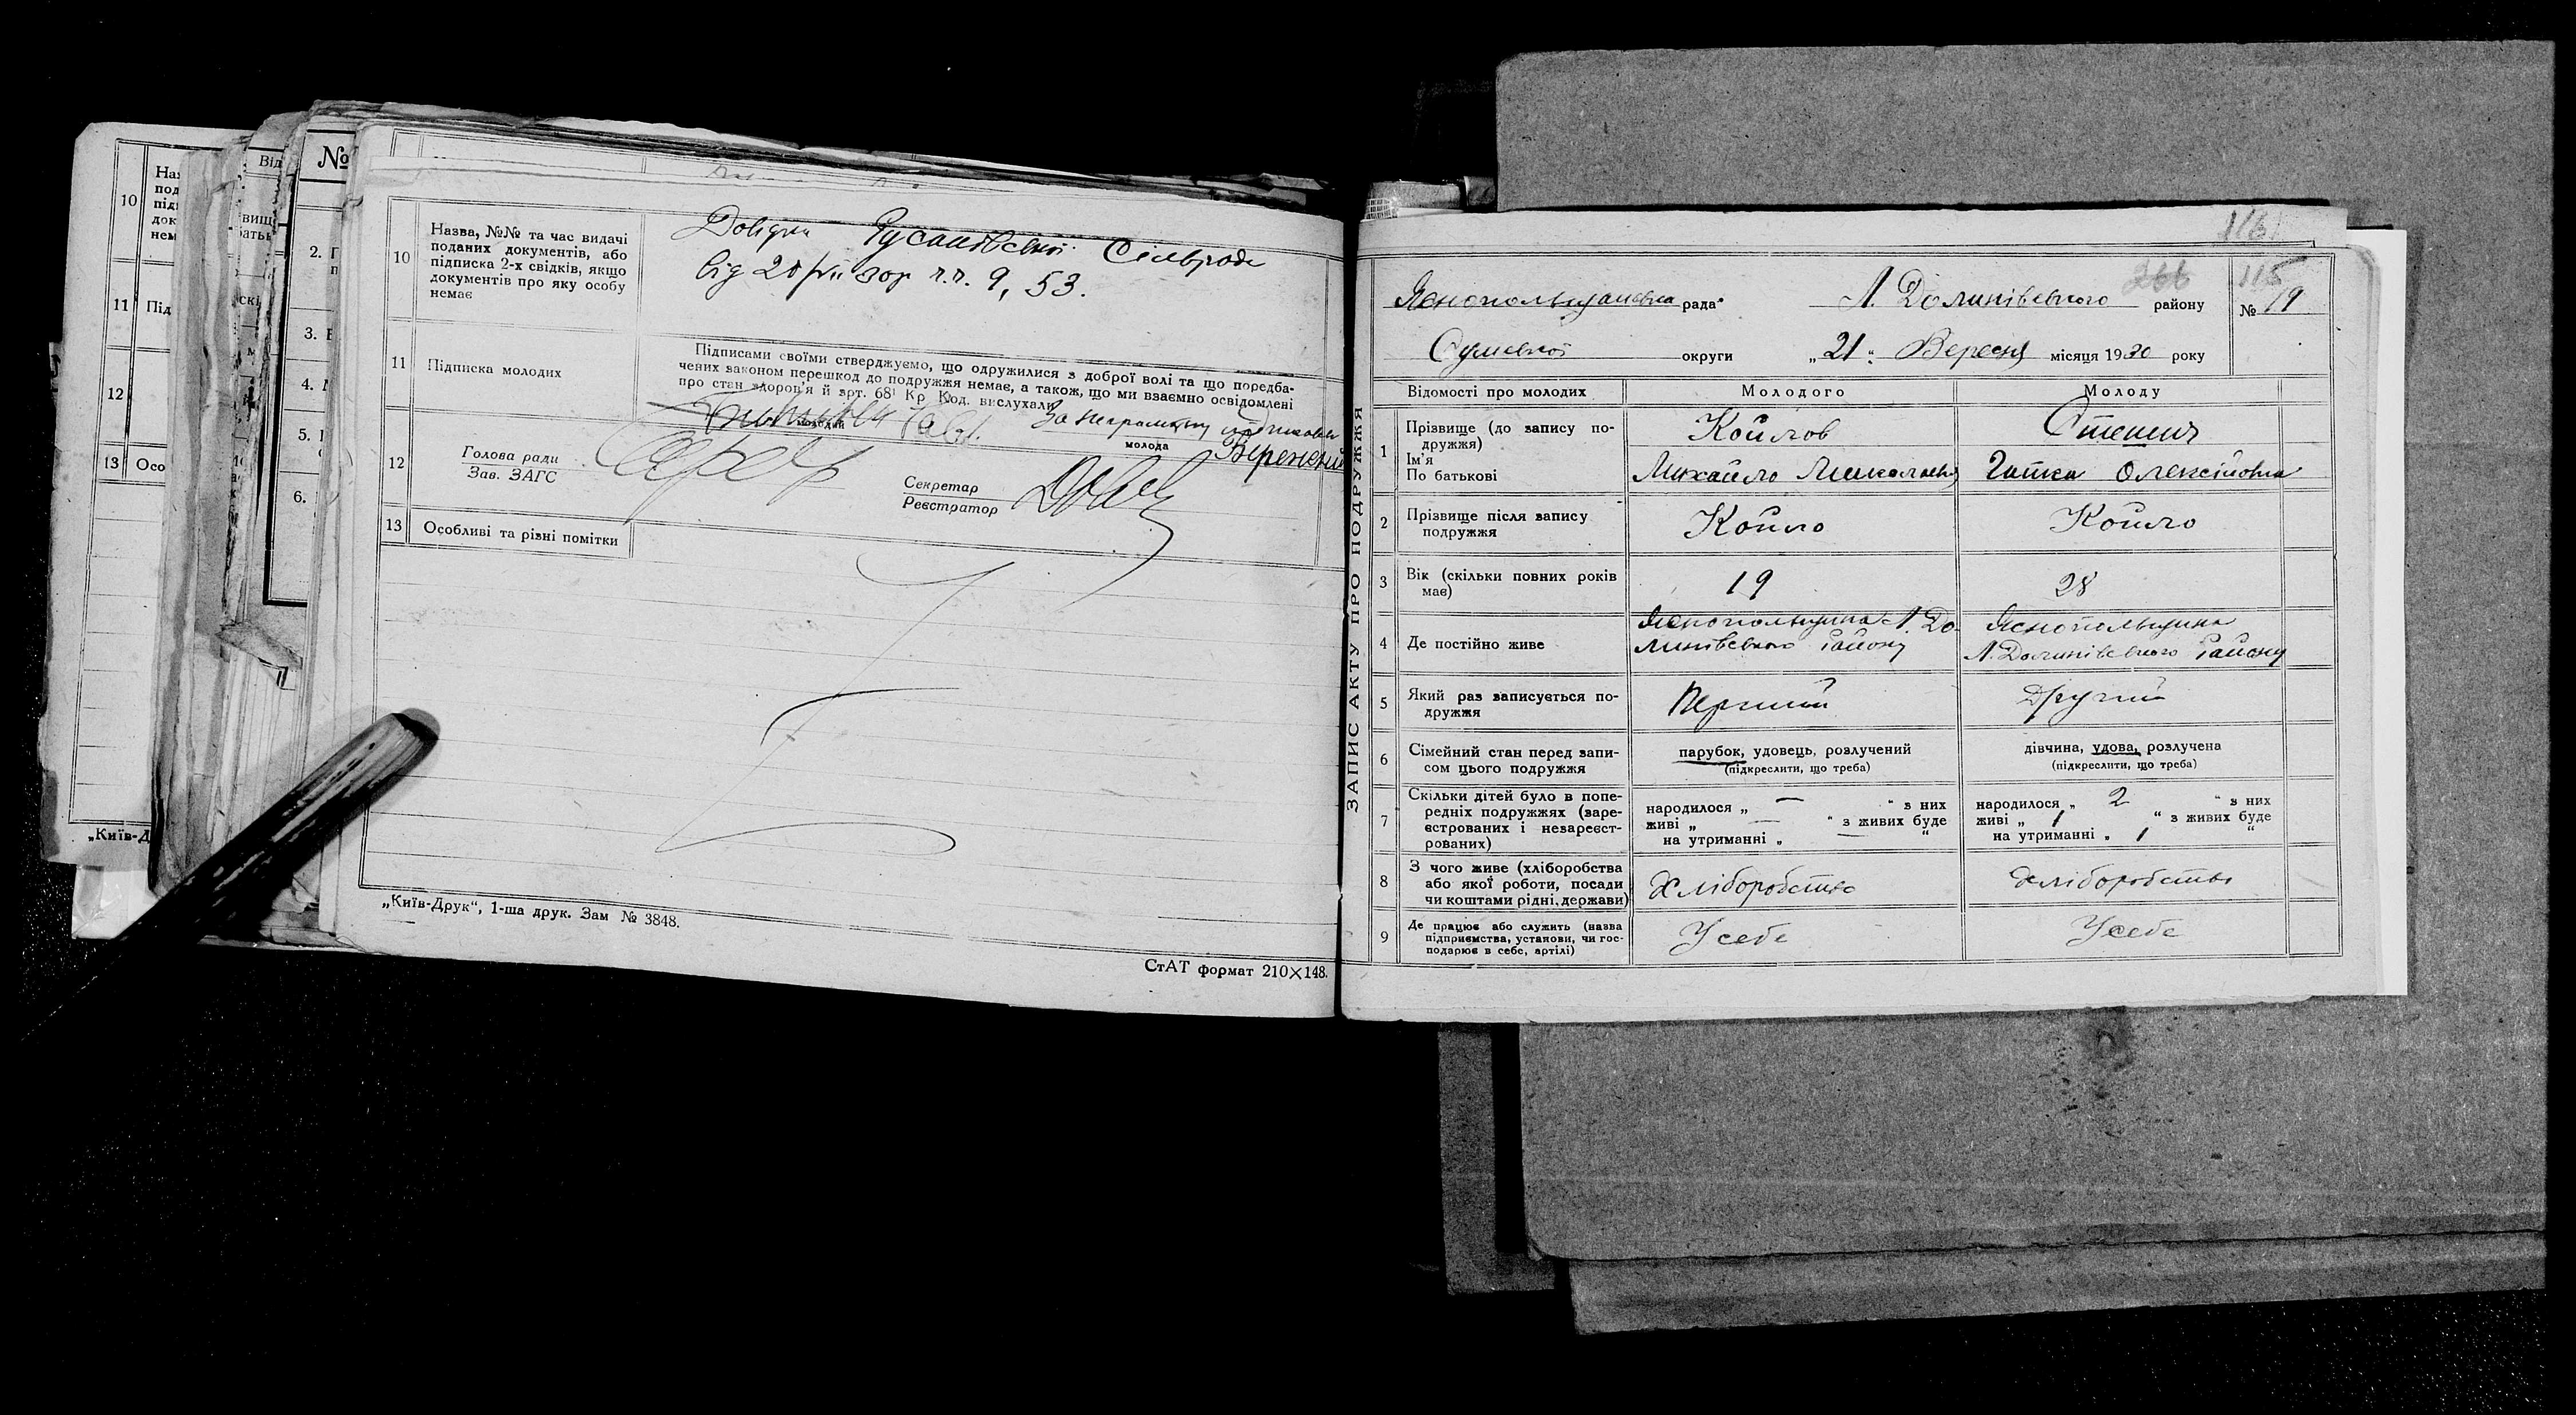 10
11 Під
12
13 Осо
„Київ-Д
Від
№
2.
3.
4.
5.
6.
10 Назва, №№ та час видачі
поданих документів, або
підписка 2-х свідків, якщо
документів про яку особу
немає
Довідки Русанівської Сільради
від 20/VII 30р п.п. 9, 53.
11 Підписка молодих
Підписами своїми стверджуємо, що одружилися з доброї волі та що передба-
чених законом перешкод до подружжя немає, а також, що ми взаємно освідомлені
про стан здоров'я й арт. 68¹ Кр. Код. вислухали
За неграмотну
молодий
молода
12 Голова ради
Зав. ЗАГС
Секретар
Реєстратор
13 Особливі та різні помітки
„Київ-Друк“, 1-ша друк. Зам № 3848.
СтАТ формат 210×148.
ЗАПИС АКТУ ПРО ПОДРУЖЖЯ
116
266
115
Яснопольщанська рада Л. Долинівського району № 19
Сумської округи „21“ Вересня місяця 1930 року
Відомості про молодих Молодого Молоду
1 Прізвище (до запису по-
дружжя)
Ім'я
По батькові
Койлов
Михайло Миколаєв
Олексіївна
2 Прізвище після запису
подружжя
Койло Койло
3 Вік (скільки повних років
має)
19 28
4 Де постійно живе
Яснопольщина Л. До-
линівського Району
Яснопольщина
Л. Долинівського Району
5 Який раз записується по-
дружжя
Перший Другий
6 Сімейний стан перед запи-
сом цього подружжя
парубок, удовець, розлучений
(підкреслити, що треба)
дівчина, удова, розлучена
(підкреслити, що треба)
7 Скільки дітей було в попе-
редніх подружжях (заре-
єстрованих і незареєст-
рованих)
народилося „ — “ з них
живі „ — “ з живих буде
на утриманні „ — “
народилося „ 2 “ з них
живі „ 1 “ з живих буде
на утриманні „ 1 “
8 З чого живе (хліборобства
або якої роботи, посади
чи коштами рідні, держави)
Хліборобство Хліборобство
9 Де працює або служить (назва
підприємства, установи, чи гос-
подарює в себе, артілі)
У себе У себе